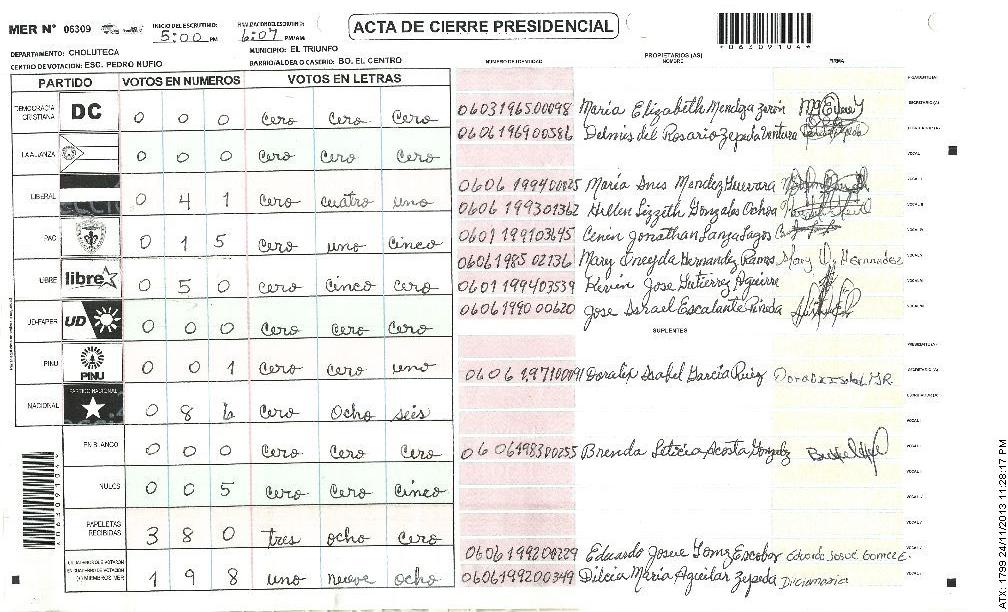 MER N° 06309
INICIO DEL ESCRUTINIO: 5:00 PM
FINALIZACION DEL ESCRUTINIO: 6:07 PM/AM
ACTA DE CIERRE PRESIDENCIAL
*06309104*
DEPARTAMENTO: CHOLUTECA
MUNICIPIO: EL TRIUNFO
CENTRO DE VOTACION: ESC. PEDRO NUFIO
BARRIO/ALDEA O CASERIO: BO. EL CENTRO
NUMERO DE IDENTIDAD
PROPIETARIOS (AS)
NOMBRE
FIRMA
PARTIDO VOTOS EN NUMEROS VOTOS EN LETRAS
DEMOCRACIA CRISTIANA DC 0 0 0 Cero Cero Cero
LA ALIANZA 0 0 0 Cero Cero Cero
LIBERAL 0 4 1 Cero cuatro uno
PAC 0 1 5 Cero uno cinco
LIBRE libre 0 5 0 Cero cinco cero
UD-FAPER UD 0 0 0 Cero Cero Cero
PINU PINU 0 0 1 Cero Cero uno
NACIONAL PARTIDO NACIONAL 0 8 6 Cero Ocho seis
EN BLANCO 0 0 0 Cero Cero Cero
NULOS 0 0 5 Cero Cero Cinco
PAPELETAS RECIBIDAS 3 8 0 tres ocho cero
1 9 8 uno nueve ocho
SECRETARIO (A)
0603196500098 Maria Elizabeth Mendoza
0606196900586 Delmis del Rosario Zepeda Ventura
VOCAL I
0606199400025 María Ines Mendez Guevara
0606199301362 Hellen Lizzeth Gonzales Ochoa
0601199103695 Cenin Jonathan Lanza Lagos
0606198502136 Mary Oneyda Hernandez Ramos Mary O. Hernandez
0601199403539 Kevin Jose Gutierrez Aguirre
0606199000620 Jose Israel Escalante Pineda
SUPLENTES
Doralix Isabel Garcia Ruiz
0606198300255 Brenda Leticia Acosta
0606199200229 Eduardo Josue Gomz Escobar
0606199200349 Dilcia María Aguilar Zepeda Dilciamaria
*06309104*
ATX: 1799 24/11/2013 11:28:17 PM